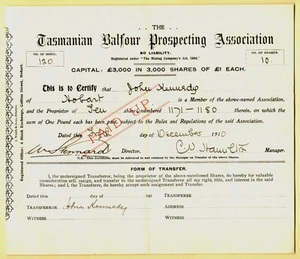 THE
Tasmanian Balfour Prospecting Association
NO LIABILITY.
Registered under "The Mining Company's Act, 1884."
CAPITAL: £3,000 IN 3,000 SHARES OF £1 EACH.
NO. OF SCRIP.
120
NO. OF SHARES.
10
This is to Certify that John Kennedy
of Hobart is a Member of the above-named Association,
and the Proprietor of Ten Shares numbered 1171-1180 therein, on which the
sum of One Pound each has been paid, subject to the Rules and Regulations of the said Association.
Dated this day of December 1910
PAID UP
Director.
Manager.
This Certificate must be delivered to the Manager on Transfer of the above Shares.
FORM OF TRANSFER.
I, the undersigned Transferror, being the proprietor of the above-mentioned Shares, do hereby for
valuable consideration sell, assign, and transfer to the undersigned Transferee all my right, title, and interest in the said
Shares; and I, the Transferee, do hereby accept such assignment and Transfer.
Dated this day of 191
TRANSFEROR John Kennedy
WITNESS
TRANSFEREE
ADDRESS
WITNESS
Registered Office: 2 Stock Exchange, Collins Street, Hobart.